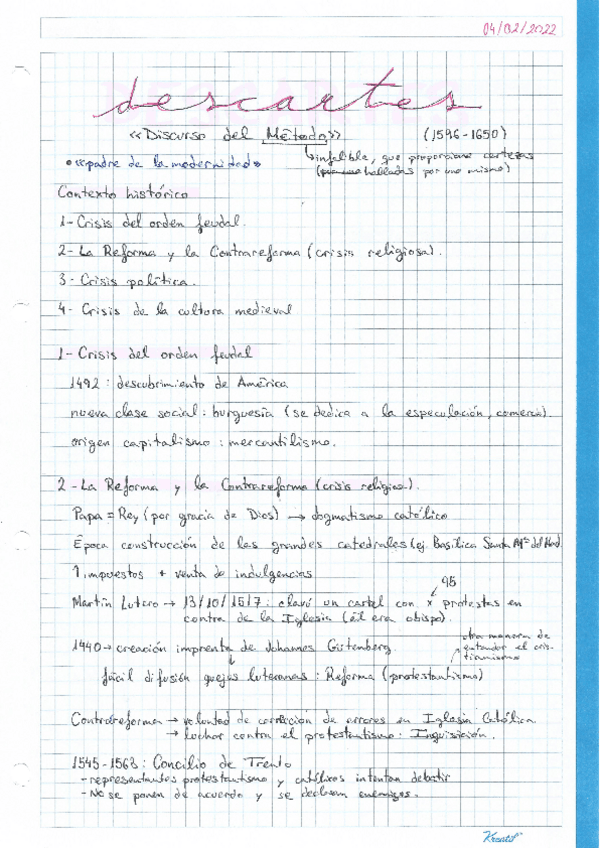 04/02/2022
descartes
<<Discurso del Método>> (1596-1650)
↳infalible, que proporciona certezas
• <<padre de la modernidad>>
(halladas por uno mismo)
Contexto histórico
1- Crisis del orden feudal.
2- La Reforma y la Contrareforma (crisis religiosa).
3- Crisis política.
4- Crisis de la cultura medieval
1- Crisis del orden feudal
1492: descubrimiento de América
nueva clase social: burguesía (se dedica a la especulación, comercio).
origen capitalismo: mercantilismo.
2-La Reforma y la Contrareforma (crisis religiosa).
Papa = Rey (por gracia de Dios) → dogmatismo católico
Época construcción de las grandes catedrales (ej. Basílica Santa Mª del Mar)
↑ impuestos + venta de indulgencias
95
Martín Lutero → 13/10/1517: clavó un cartel con x protestas en
contra de la Iglesia (él era obispo).
1940→ creación imprenta de Johannes Gütenberg
otra manera de
entender el cris-
tianismo
fácil difusión quejas luteranas: Reforma (protestantismo)
Contrareforma → voluntad de corrección de errores en Iglesia Católica
→ luchar contra el protestantismo: Inquisición.
1545-1563: Concilio de Trento
- representantes protestantismo y católicos intentan debatir
- No se ponen de acuerdo y se declaran enemigos.